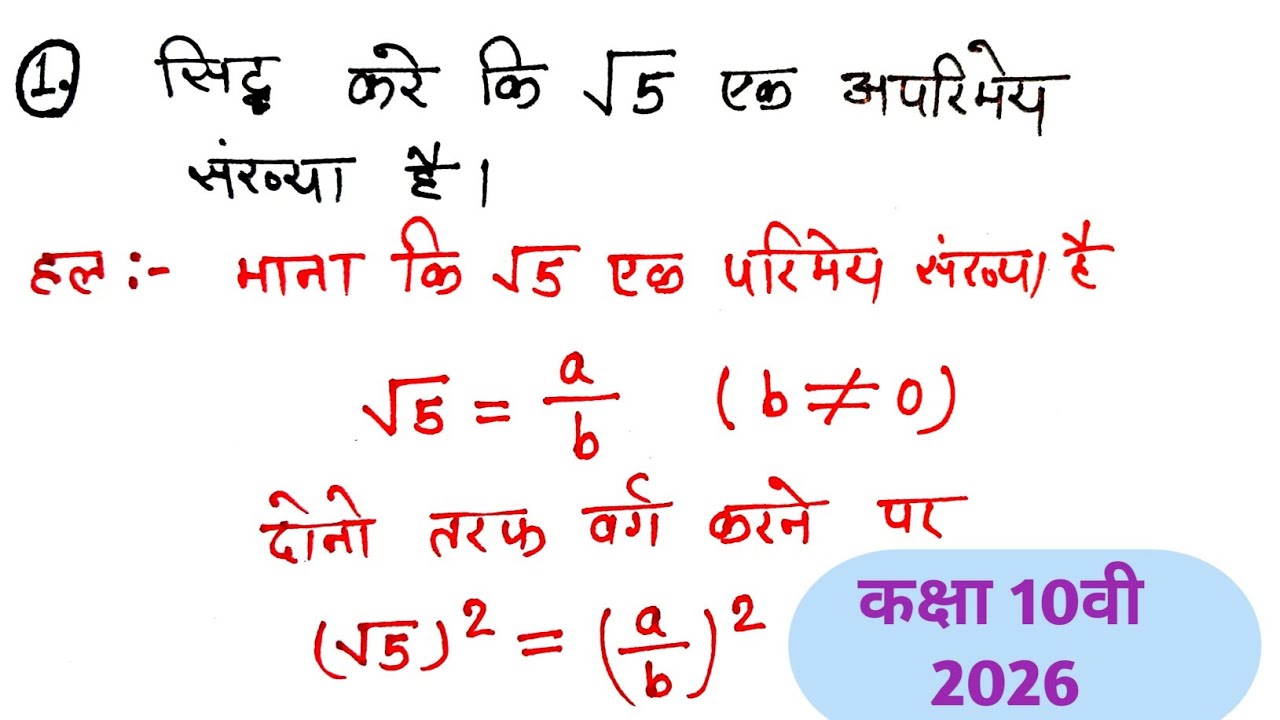 1. सिद्ध करे कि √5 एक अपरिमेय
संख्या है।
हल :- माना कि √5 एक परिमेय संख्या है
√5 = a/b (b ≠ 0)
दोनो तरफ वर्ग करने पर
(√5)² = (a/b)²
कक्षा 10वी
2026